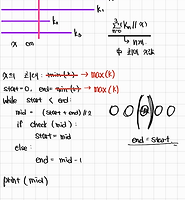 k₁
k₂
k₃
x cm
Σ(kₙ // x)
n=0
↳ n개
최댓값: min(k) → max(k)
start=0, end= min(k) → max(k)
while start < end:
mid = (start + end) // 2
if check (mid):
start = mid
else:
end = mid - 1
print (mid)
end = start